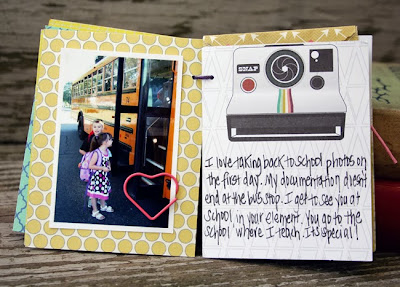 SNAP
I love taking back to school photos on
the first day. My documentation doesn't
end at the bus stop. I get to see you at
school in your element. You go to the
school where I teach. It's special!